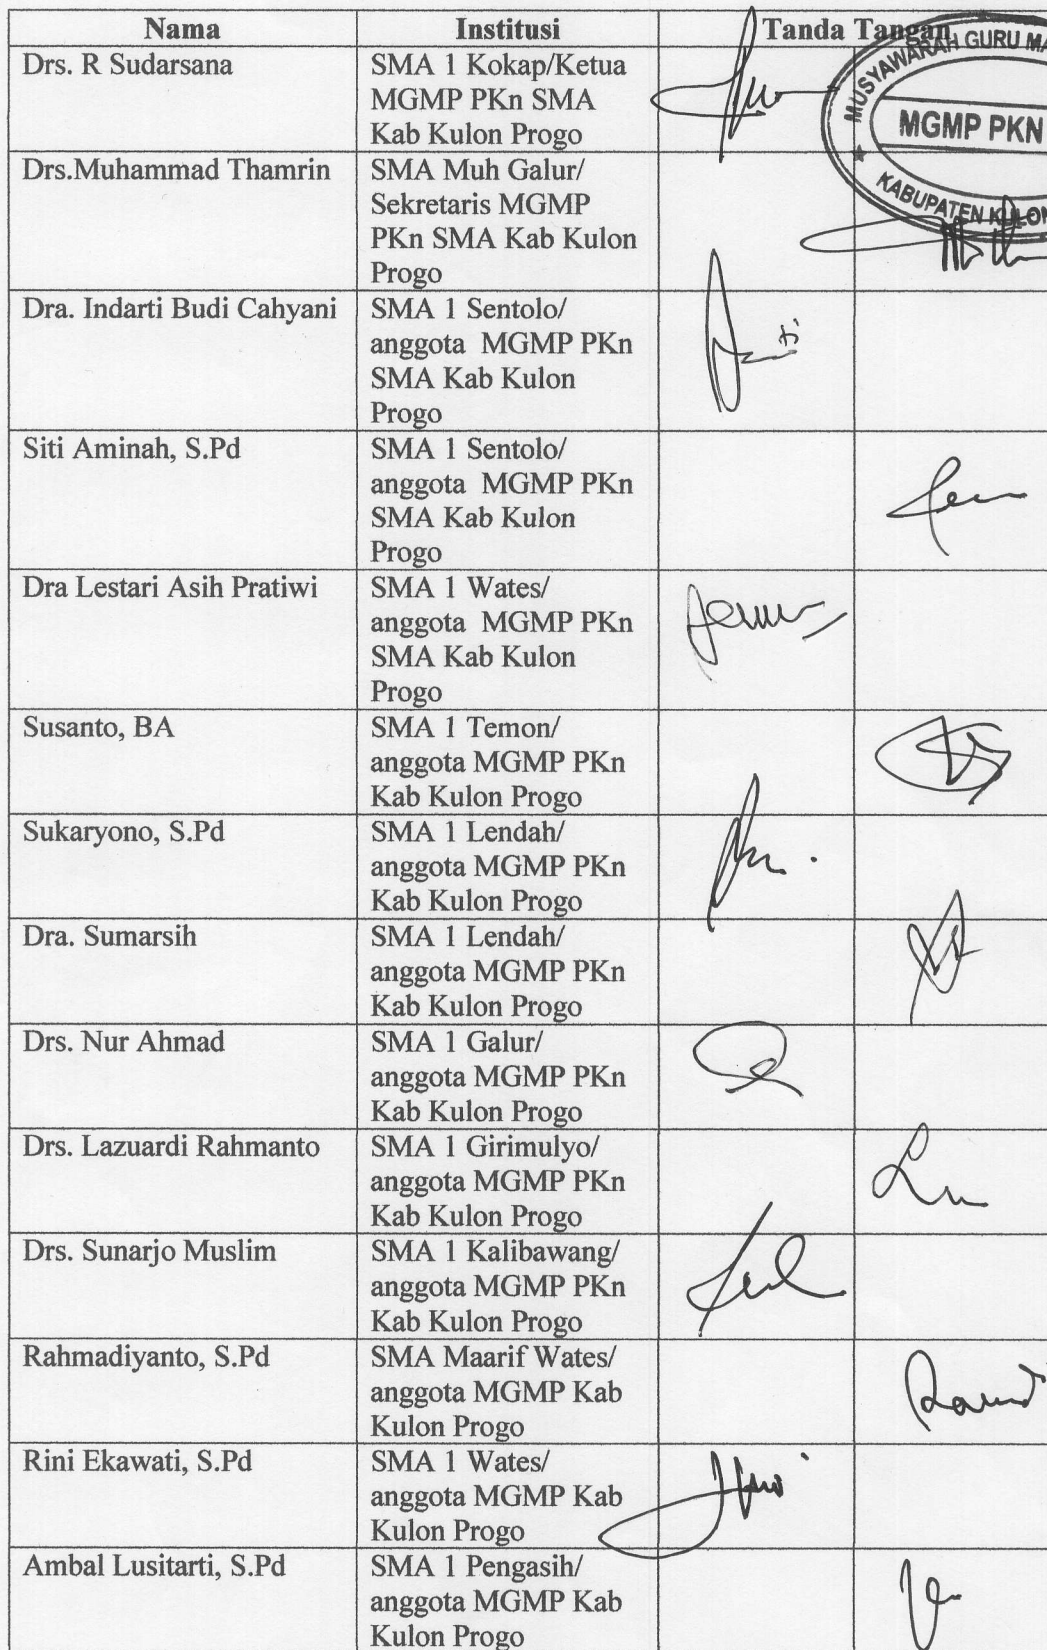 Nama Institusi Tanda Tangan
Drs. R Sudarsana SMA 1 Kokap/Ketua
MGMP PKn SMA
Kab Kulon Progo
MUSYAWARAH GURU MA
MGMP PKN
KABUPATEN KULON
Drs.Muhammad Thamrin SMA Muh Galur/
Sekretaris MGMP
PKn SMA Kab Kulon
Progo
Dra. Indarti Budi Cahyani SMA 1 Sentolo/
anggota MGMP PKn
SMA Kab Kulon
Progo
Siti Aminah, S.Pd SMA 1 Sentolo/
anggota MGMP PKn
SMA Kab Kulon
Progo
Dra Lestari Asih Pratiwi SMA 1 Wates/
anggota MGMP PKn
SMA Kab Kulon
Progo
Susanto, BA SMA 1 Temon/
anggota MGMP PKn
Kab Kulon Progo
Sukaryono, S.Pd SMA 1 Lendah/
anggota MGMP PKn
Kab Kulon Progo
Dra. Sumarsih SMA 1 Lendah/
anggota MGMP PKn
Kab Kulon Progo
Drs. Nur Ahmad SMA 1 Galur/
anggota MGMP PKn
Kab Kulon Progo
Drs. Lazuardi Rahmanto SMA 1 Girimulyo/
anggota MGMP PKn
Kab Kulon Progo
Drs. Sunarjo Muslim SMA 1 Kalibawang/
anggota MGMP PKn
Kab Kulon Progo
Rahmadiyanto, S.Pd SMA Maarif Wates/
anggota MGMP Kab
Kulon Progo
Rini Ekawati, S.Pd SMA 1 Wates/
anggota MGMP Kab
Kulon Progo
Ambal Lusitarti, S.Pd SMA 1 Pengasih/
anggota MGMP Kab
Kulon Progo